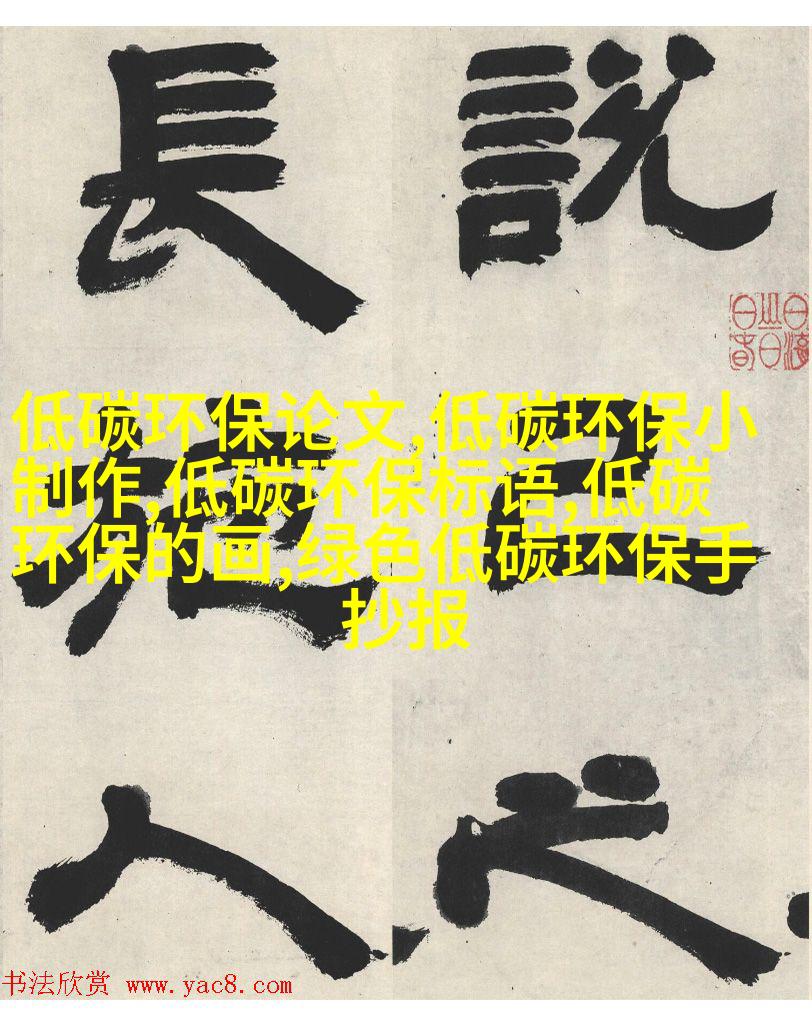 說己之
長施人
低碳环保论文,低碳环保小
制作,低碳环保标语,低碳
环保的画,绿色低碳环保手
抄报
书法欣赏 www.yac8.com